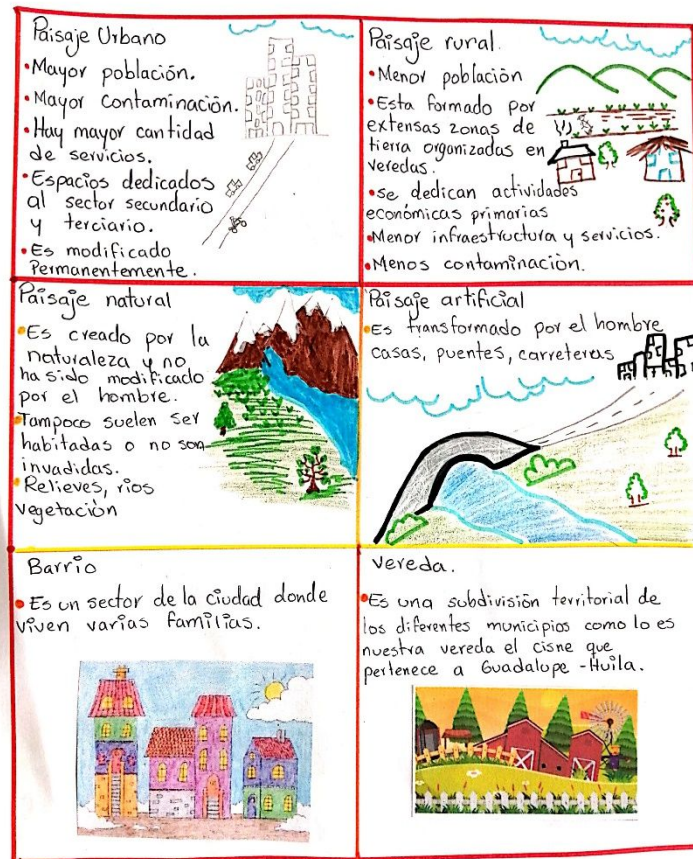 Paisaje Urbano
•Mayor población.
•Mayor contaminación.
•Hay mayor cantidad
de servicios.
•Espacios dedicados
al sector secundario
y terciario.
•Es modificado
Permanentemente.
Paisaje rural.
•Menor población
•Esta formado por
extensas zonas de
tierra organizadas en
veredas.
•se dedican actividades
económicas primarias
•Menor infraestructura y servicios.
•Menos contaminación.
Paisaje natural
•Es creado por la
naturaleza y no
ha sido modificado
por el hombre.
•Tampoco suelen ser
habitadas o no son
invadidas.
•Relieves, rios
vegetación
Paisaje artificial
•Es transformado por el hombre
casas, puentes, carreteras
Barrio
•Es un sector de la ciudad donde
viven varias familias.
vereda.
•Es una subdivisión territorial de
los diferentes municipios como lo es
nuestra vereda el cisne que
pertenece a Guadalupe -Huila.